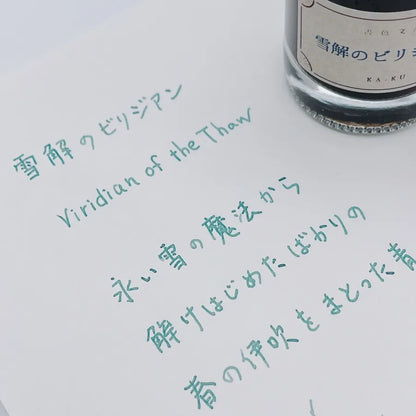 雪解のビリジアン
Viridian of the Thaw
永い雪の魔法から
解けはじめたばかりの
春の伊吹をまとった青
雪解のビリジ
KA-KU